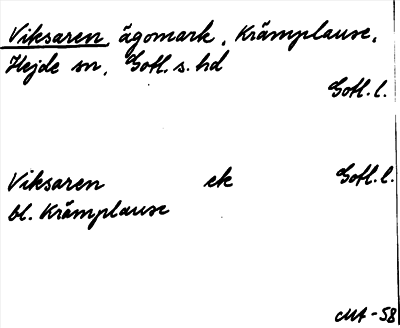 Viksaren, ägomark, Krämplause,
Hejde sn, Gotl. s. hd
Gotl. l.
Viksaren ek Gotl. l.
bl. Krämplause
MA-58